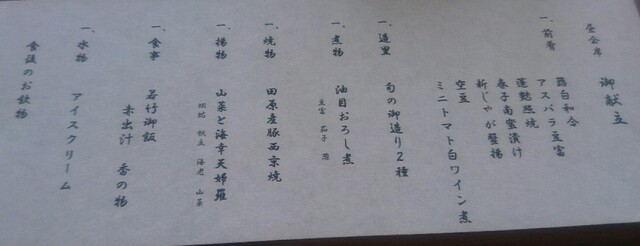 昼会席 御献立
一、前肴
蕗白和合
アスパラ豆富
蓮麩照焼
春子南蛮漬け
新じゃが蟹揚
空豆
ミニトマト白ワイン煮
一、造里 旬の御造り2種
一、煮物 油目おろし煮
豆富 茄子
一、焼物 田原産豚西京焼
一、揚物 山菜と海幸天婦羅
帆立 海老 山菜
一、食事 若竹御飯
赤出汁 香の物
一、水物 アイスクリーム
食後のお飲物